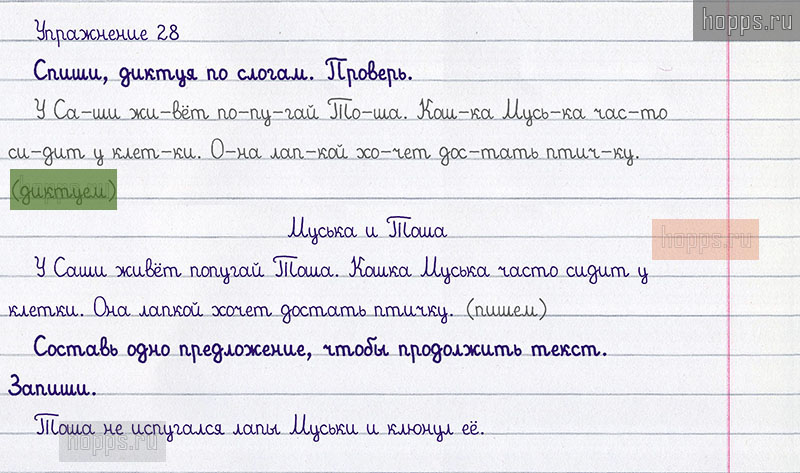 hopps.ru
Упражнение 28
Спиши, диктуя по слогам. Проверь.
У Са-ши жи-вёт по-пу-гай То-ша. Кош-ка Мусь-ка час-то
си-дит у клет-ки. О-на лап-кой хо-чет дос-тать птич-ку.
(диктуем)
Муська и Тоша
hopps.ru
У Саши живёт попугай Тоша. Кошка Муська часто сидит у
клетки. Она лапкой хочет достать птичку. (пишем)
Составь одно предложение, чтобы продолжить текст.
Запиши.
Тоша не испугался лапы Муськи и клюнул её.
hopps.ru